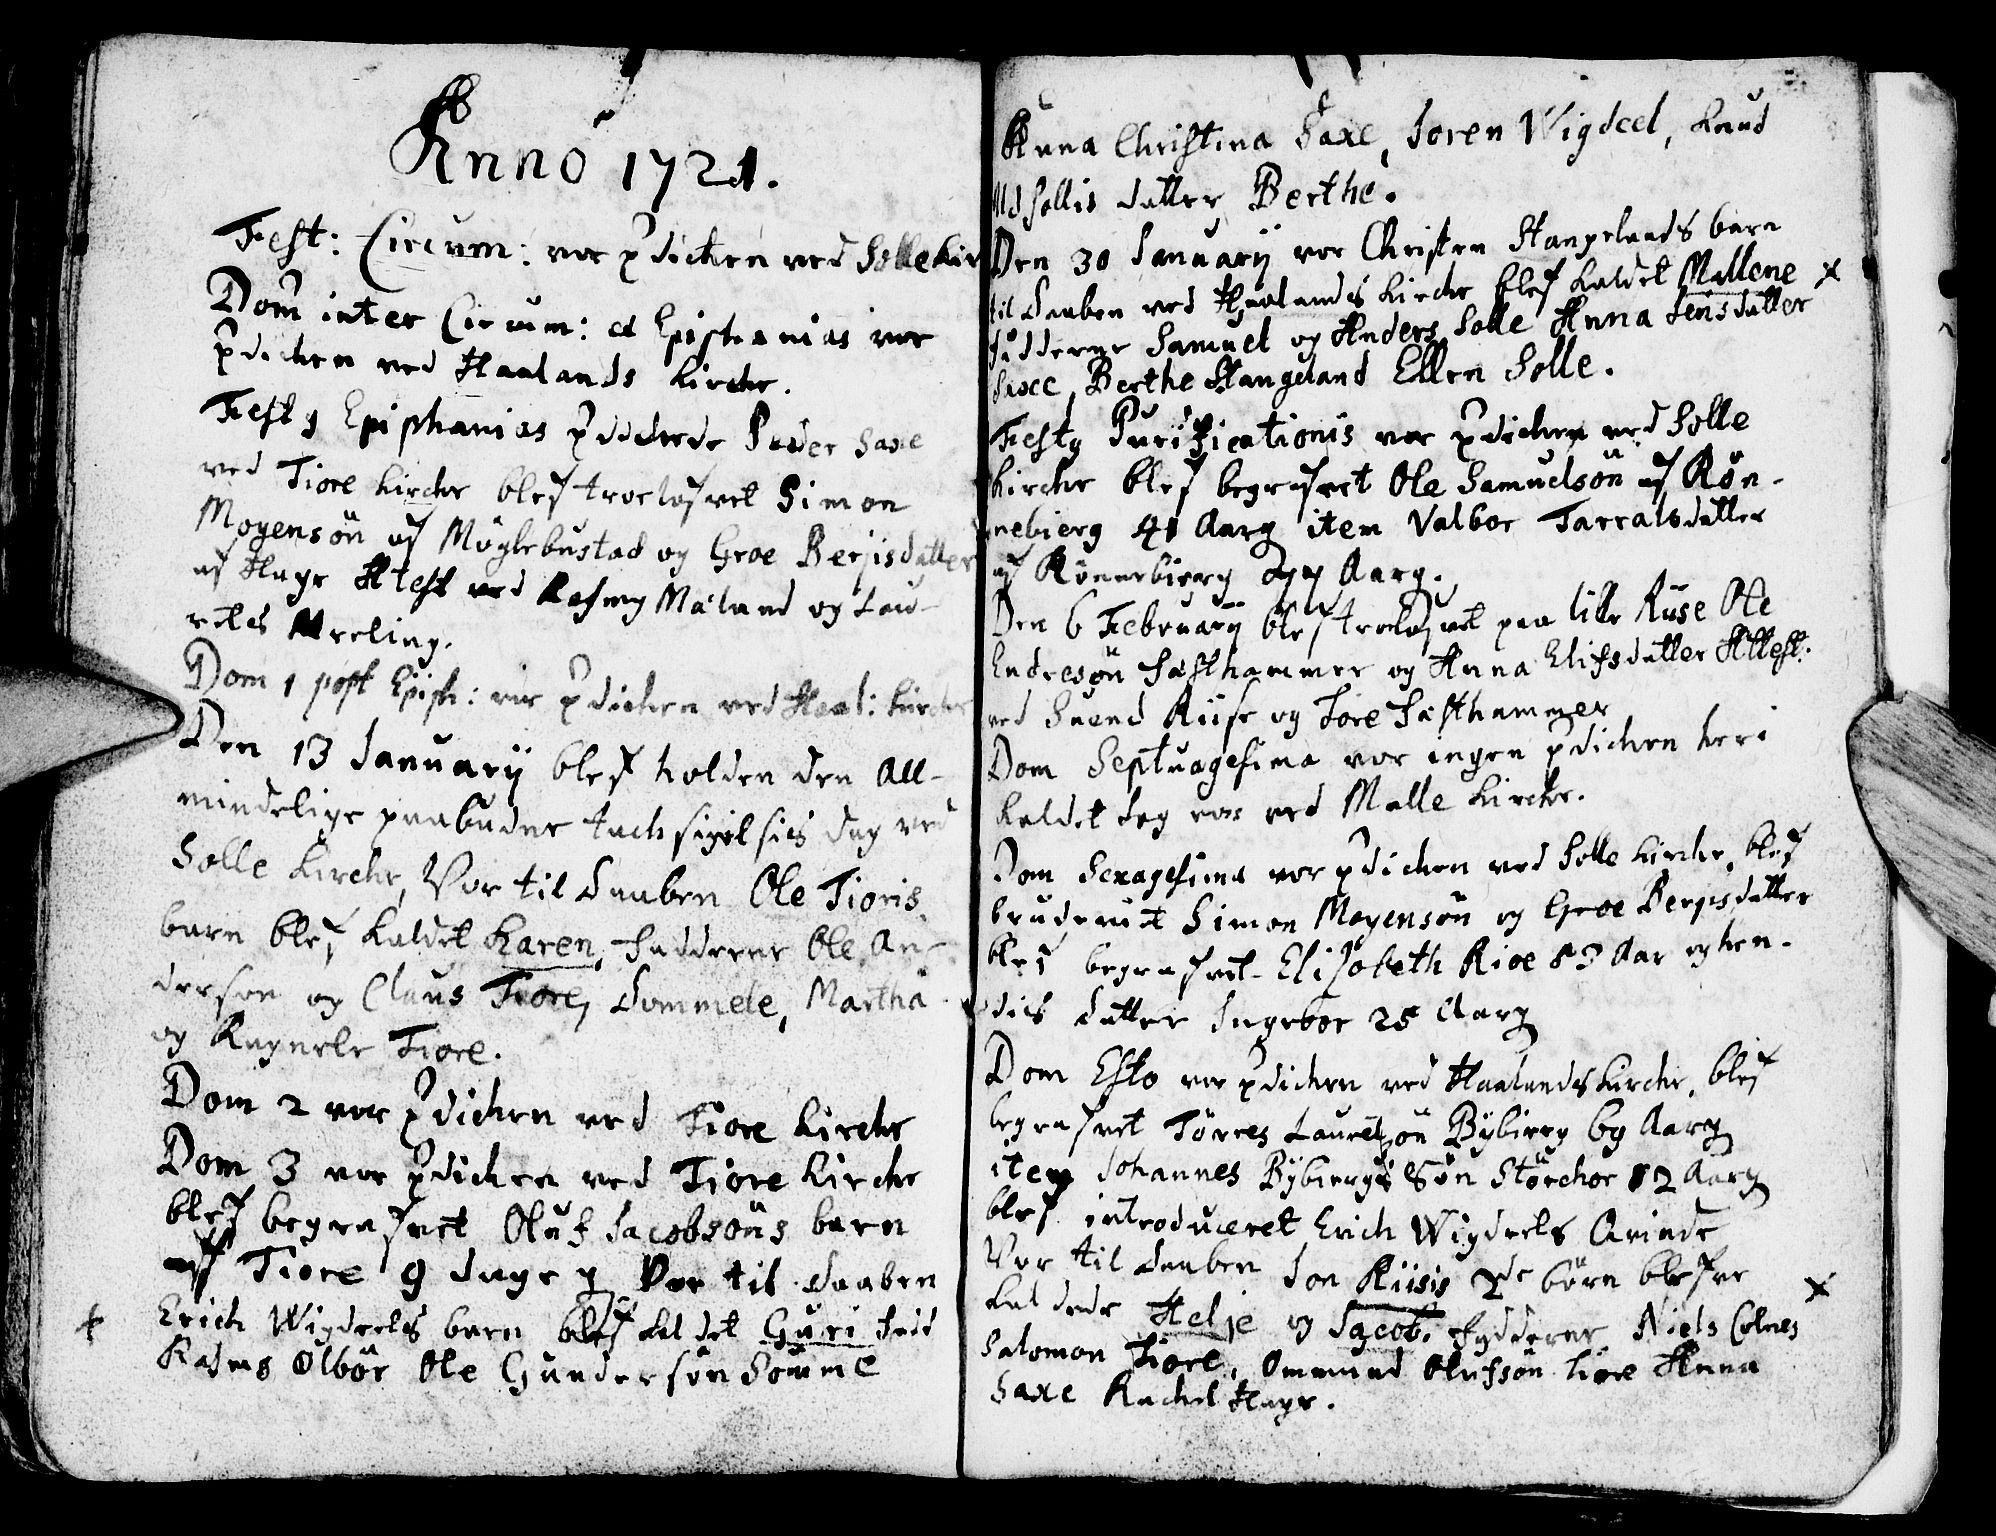 Anno 1721.
Fest: Circum: var pdichen ved Solle Kir
Dom inter Circum: et Epiphanias var
pdichen ved Haalands Kirche.
Festg Epiphanias pdichede Peder Saxe
ved Tiore Kirche blef troelofvet Simon
Mogensön af Möglebustad og Groe Berjisdatter
af Hage Attest ved Rasmg Maland og Lau-
ritis Meeling.
Dom 1 post Epiph: var pdichen ved Haal: Kirche
Den 13 Januarij blef holden den All-
mindelige paabudne tachsigelsis dag ved
Solle Kirche, Var til Daaben Ole Tioris
barn blef kaldet Karen, fadderne Ole An-
derson og Claus Tiore, Dommele, Martha
og Ragnele Tiore.
Dom 2 var pdichen ved Tiore Kirche
Dom 3 var pdichen ved Tiore Kirche
blef begrafvet Oluf Jacobsöns barn
af Tiore 9 dage g Var til daaben
Erich Wigdeels barn blef kaldet Guri fadd
Rasms Ölbör Ole Gundersön Somme
Anna Christina Saxe, Soren Wigdeel, Knud
Udsollis datter Berthe.
Den 30 Januarij var Christen Stangelands barn
til Daaben ved Haalands Kirche blef kaldet Mallene x
fadderne Samuel og Anders Solle Anna Jensdatter
Saxe, Berthe Stangeland Ellen Solle.
Festg Purificationis var pdichen ved Solle
Kirche blef begrafvet Ole Samuelsön af Rön-
nebierg 41 Aarg item Valbor Tarralsdatter
af Rönnebierg 77 Aarg.
Den 6 Februarij blef troelofvet paa lille Ruse Ole
Endresön Sasthammer og Anna Elifsdatter Attest.
ved Svend Riise og Tore Sasthammer
Dom Septuagesima var ingen pdichen her i
Kaldet Jeg var ved Malle Kirche.
Dom Sexagesima var pdichen ved Solle Kirche, blef
brudeviet Simon Mogensön og Groe Berjisdatter
blef begrafvet Elisabeth Rioe 83 Aar og hen-
dis datter Ingebor 25 Aarg
Dom Esto var pdichen ved Haalands Kirche, blef
begrafvet Törres Lauritzön Bybierg 69 Aarg
item Johannes Bybiergs Sön Störchor 82 Aarg
blef introduceret Erich Wigdeels Qvinde
Var til Daaben Jon Riisis 2de börn blefve
kaldede Helje og Jacob. fadderne Niels Colnes x
Salomon Tiore, Ommund Olufsön Tiore Anna
Saxe Rachel Hage.